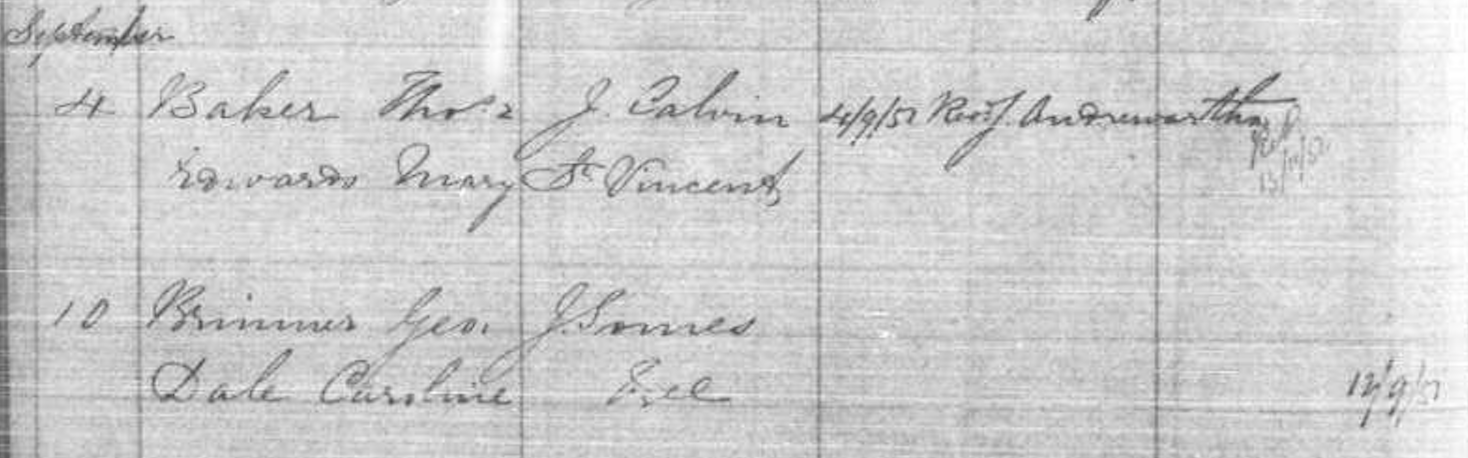 September
4 Baker Thos 2 J. Calvin 4/9/51 Revd J. Andrewartha
Edwards Mary St Vincent
10 Brimmer Geo. J. Somes
Dale Caroline 12/9/51